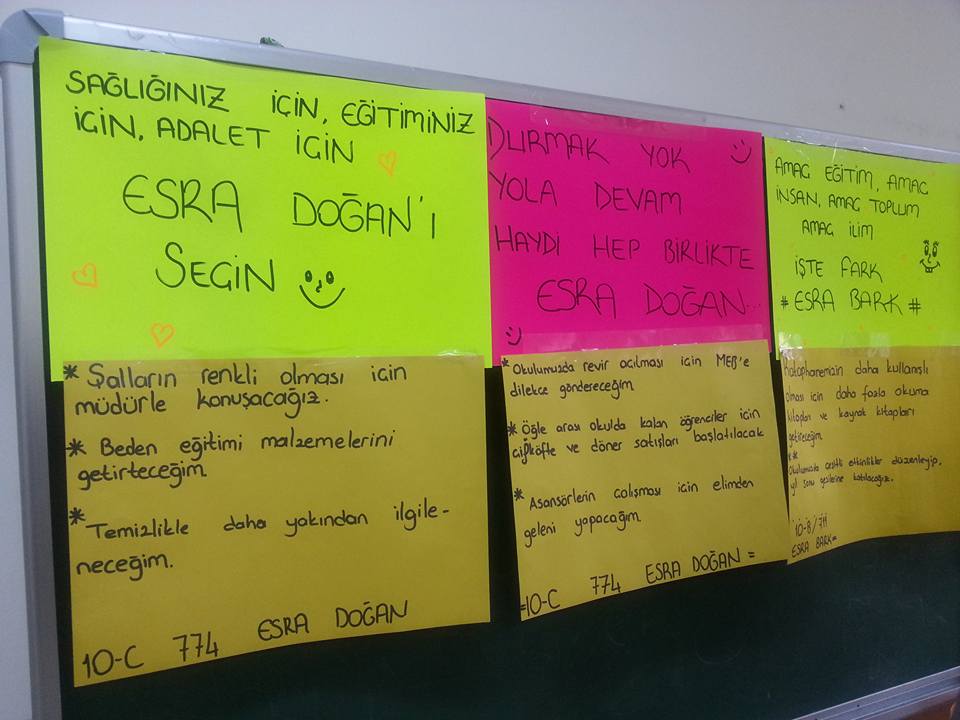 SAĞLIĞINIZ İÇİN, EĞİTİMİNİZ
İÇİN, ADALET İÇİN
ESRA DOĞAN'I
SEÇİN
* Şalların renkli olması için
müdürle konuşacağız.
* Beden eğitimi malzemelerini
getirteceğim.
* Temizlikle daha yakından ilgile-
neceğim.
10-C 774 ESRA DOĞAN
DURMAK YOK
YOLA DEVAM
HAYDİ HEP BİRLİKTE
ESRA DOĞAN...
* Okulumuzda revir açılması için MEB'e
dilekçe göndereceğim.
* Öğle arası okulda kalan öğrenciler için
çiğköfte ve döner satışları başlatılacak
* Asansörlerin çalışması için elimden
geleni yapacağım.
=10-C 774 ESRA DOĞAN =
AMAÇ EĞİTİM, AMAÇ
İNSAN, AMAÇ TOPLUM
AMAÇ İLİM
İŞTE FARK
# ESRA BARK #
daha kullanışlı
olması için daha fazla okuma
kitapları ve kaynak kitapları
getireceğim.
**
Okulumuzda çeşitli etkinlikler düzenleyip,
yıl sonu gezilerine katılacağız.
10-B/711
ESRA BARK=